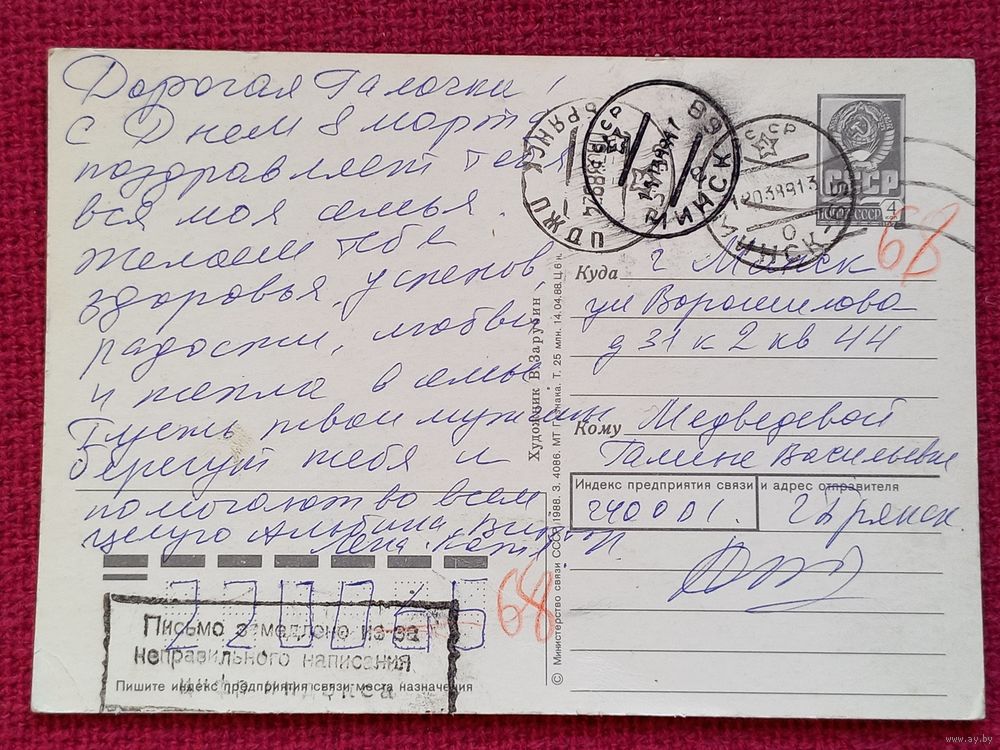 Дорогая Галочка!
С Днем 8 марта
поздравляет тебя
вся моя семья.
Желаем тебе
здоровья, успехов,
радости, любви,
и тепла в семье
Пусть твои мужчины
берегут тебя и
помогают во всем
целую Альбина,
Лена
БРЯНСК
СССР
МИНСК
СССР
МИНСК
СССР
ПОЧТА СССР
4
68
Куда г Минск
ул Ворошилова
д 31 к 2 кв 44
Кому Медведевой
Галине Васильевне
Индекс предприятия связи и адрес отправителя
240001. г Брянск
Художник В. Зарубин
© Министерство связи СССР. 1988. З. 4086. МТ Гознака. Т. 25 млн. 14.04.88. Ц. 6 к.
68
Письмо замедлено из-за
неправильного написания
индекса
Пишите индекс предприятия связи места назначения
www.ay.by